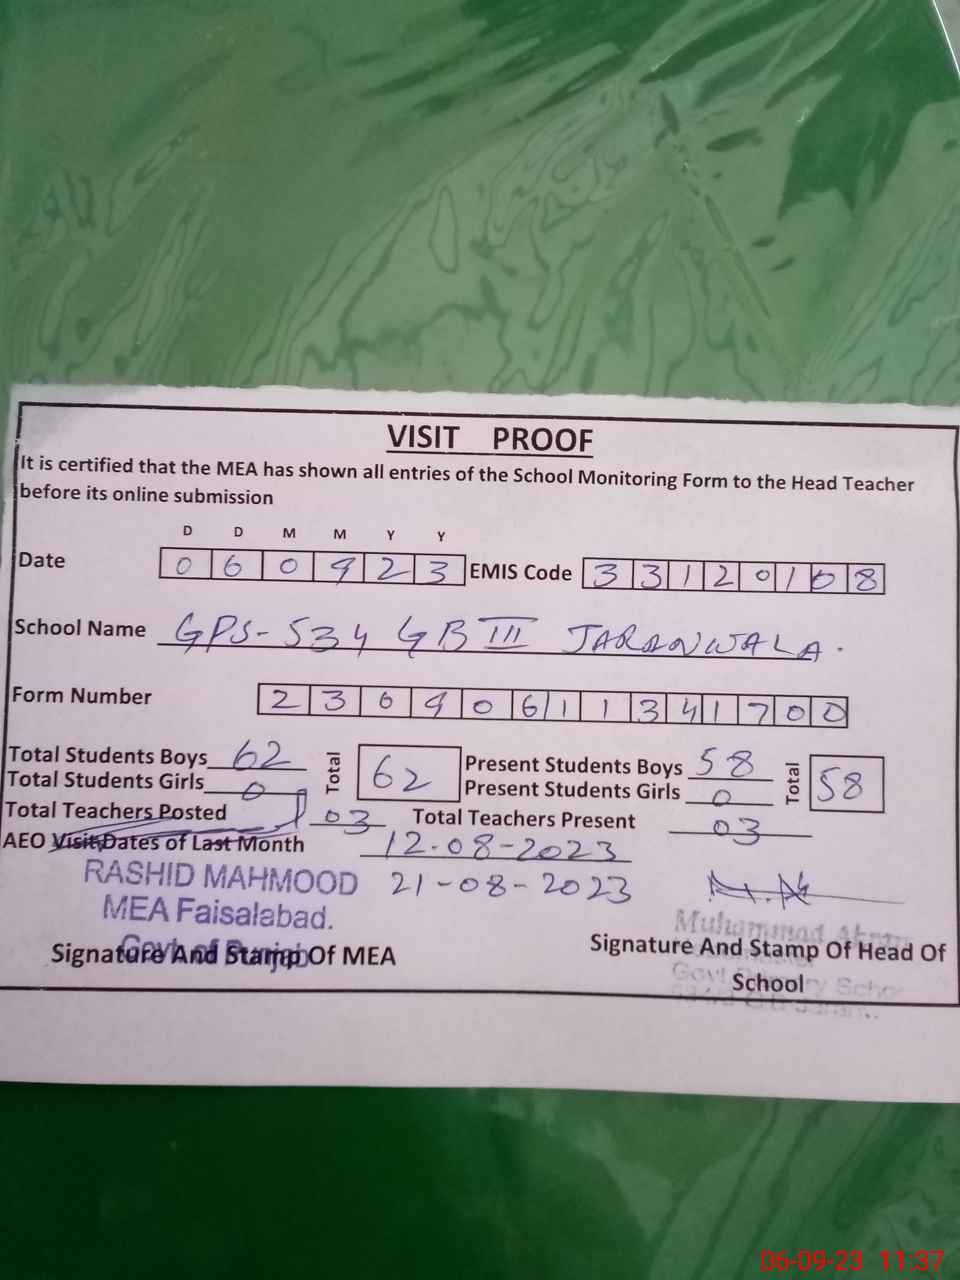 VISIT PROOF
It is certified that the MEA has shown all entries of the School Monitoring Form to the Head Teacher
before its online submission
D D M M Y Y
Date 0 6 0 9 2 3 EMIS Code 3 3 1 2 0 1 0 8
School Name GPS-534 GB III JARANWALA.
Form Number 2 3 0 9 0 6 1 1 3 4 1 7 0 0
Total Students Boys 62 Total 62 Present Students Boys 58 Total 58
Total Students Girls 0 Present Students Girls 0
Total Teachers Posted 03 Total Teachers Present 03
AEO Visit Dates of Last Month 12.08-2023
RASHID MAHMOOD 21-08-2023
MEA Faisalabad.
Govt of Punjab
Signature And Stamp Of MEA
Muhammad
Signature And Stamp Of Head Of
School
Govt Primary
06-09-23 11:37